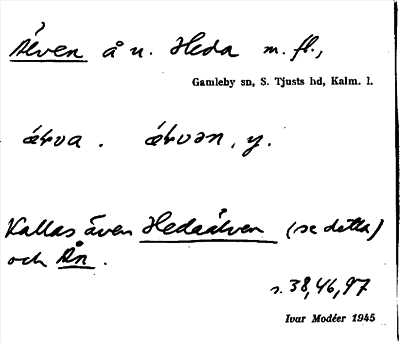 Älven å u. Heda m. fl.,
Gamleby sn, S. Tjusts hd, Kalm. l.
ærva. ærvən, y.
Kallas även Hedaälven (se detta)
och Ån.
s. 38, 46, 97
Ivar Modéer 1945